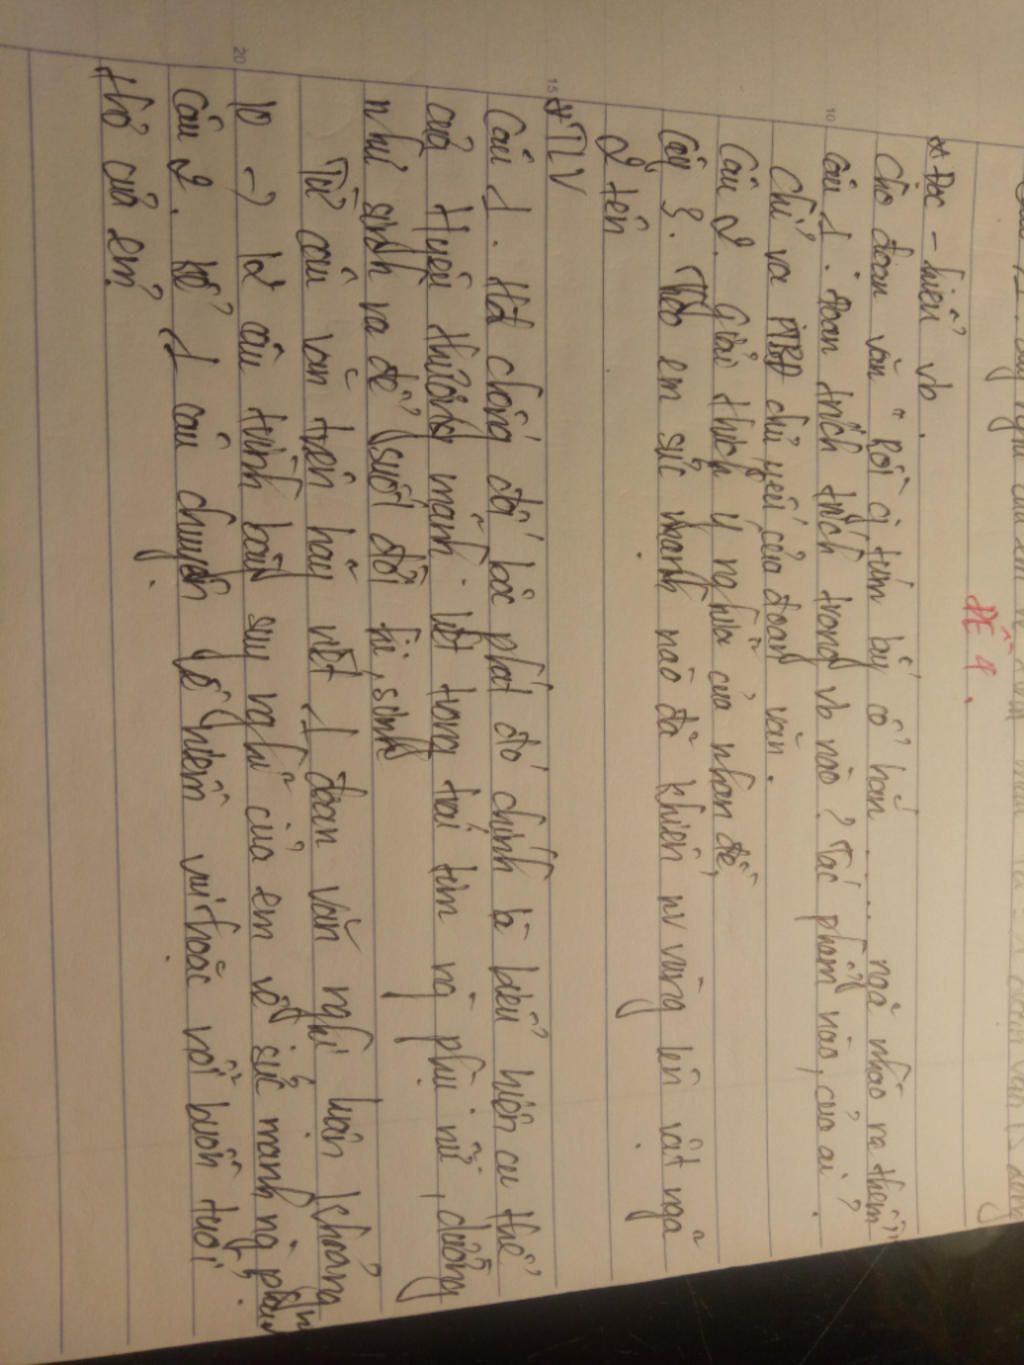 ĐỀ 4.
* Đọc - hiểu vb.
Cho đoạn văn "Rồi chị túm lấy cổ hắn ..... ngã nhào ra thềm"
Câu 1. Đoạn trích trích trong vb nào? Tác phẩm nào, của ai?
Chỉ ra PTBĐ chủ yếu của đoạn văn.
Câu 2. Giải thích ý nghĩa của nhan đề.
Câu 3. Theo em sức mạnh nào đã khiến nv vùng lên vật ngã
2 tên
* TLV
Câu 1. Hđ chống đối bộc phát đó chính là biểu hiện cụ thể
của tr yêu thương mãnh liệt trong trái tim ng phụ nữ, dường
như sinh ra để suốt đời hi sinh
Từ câu văn trên hãy viết 1 đoạn văn nghị luận khoảng
10 -> 12 câu trình bày suy nghĩ của em về sức mạnh ng phụ nữ
Câu 2. Kể 1 câu chuyện kỉ niệm vui hoặc nỗi buồn tuổi
thơ của em?
10
15
20